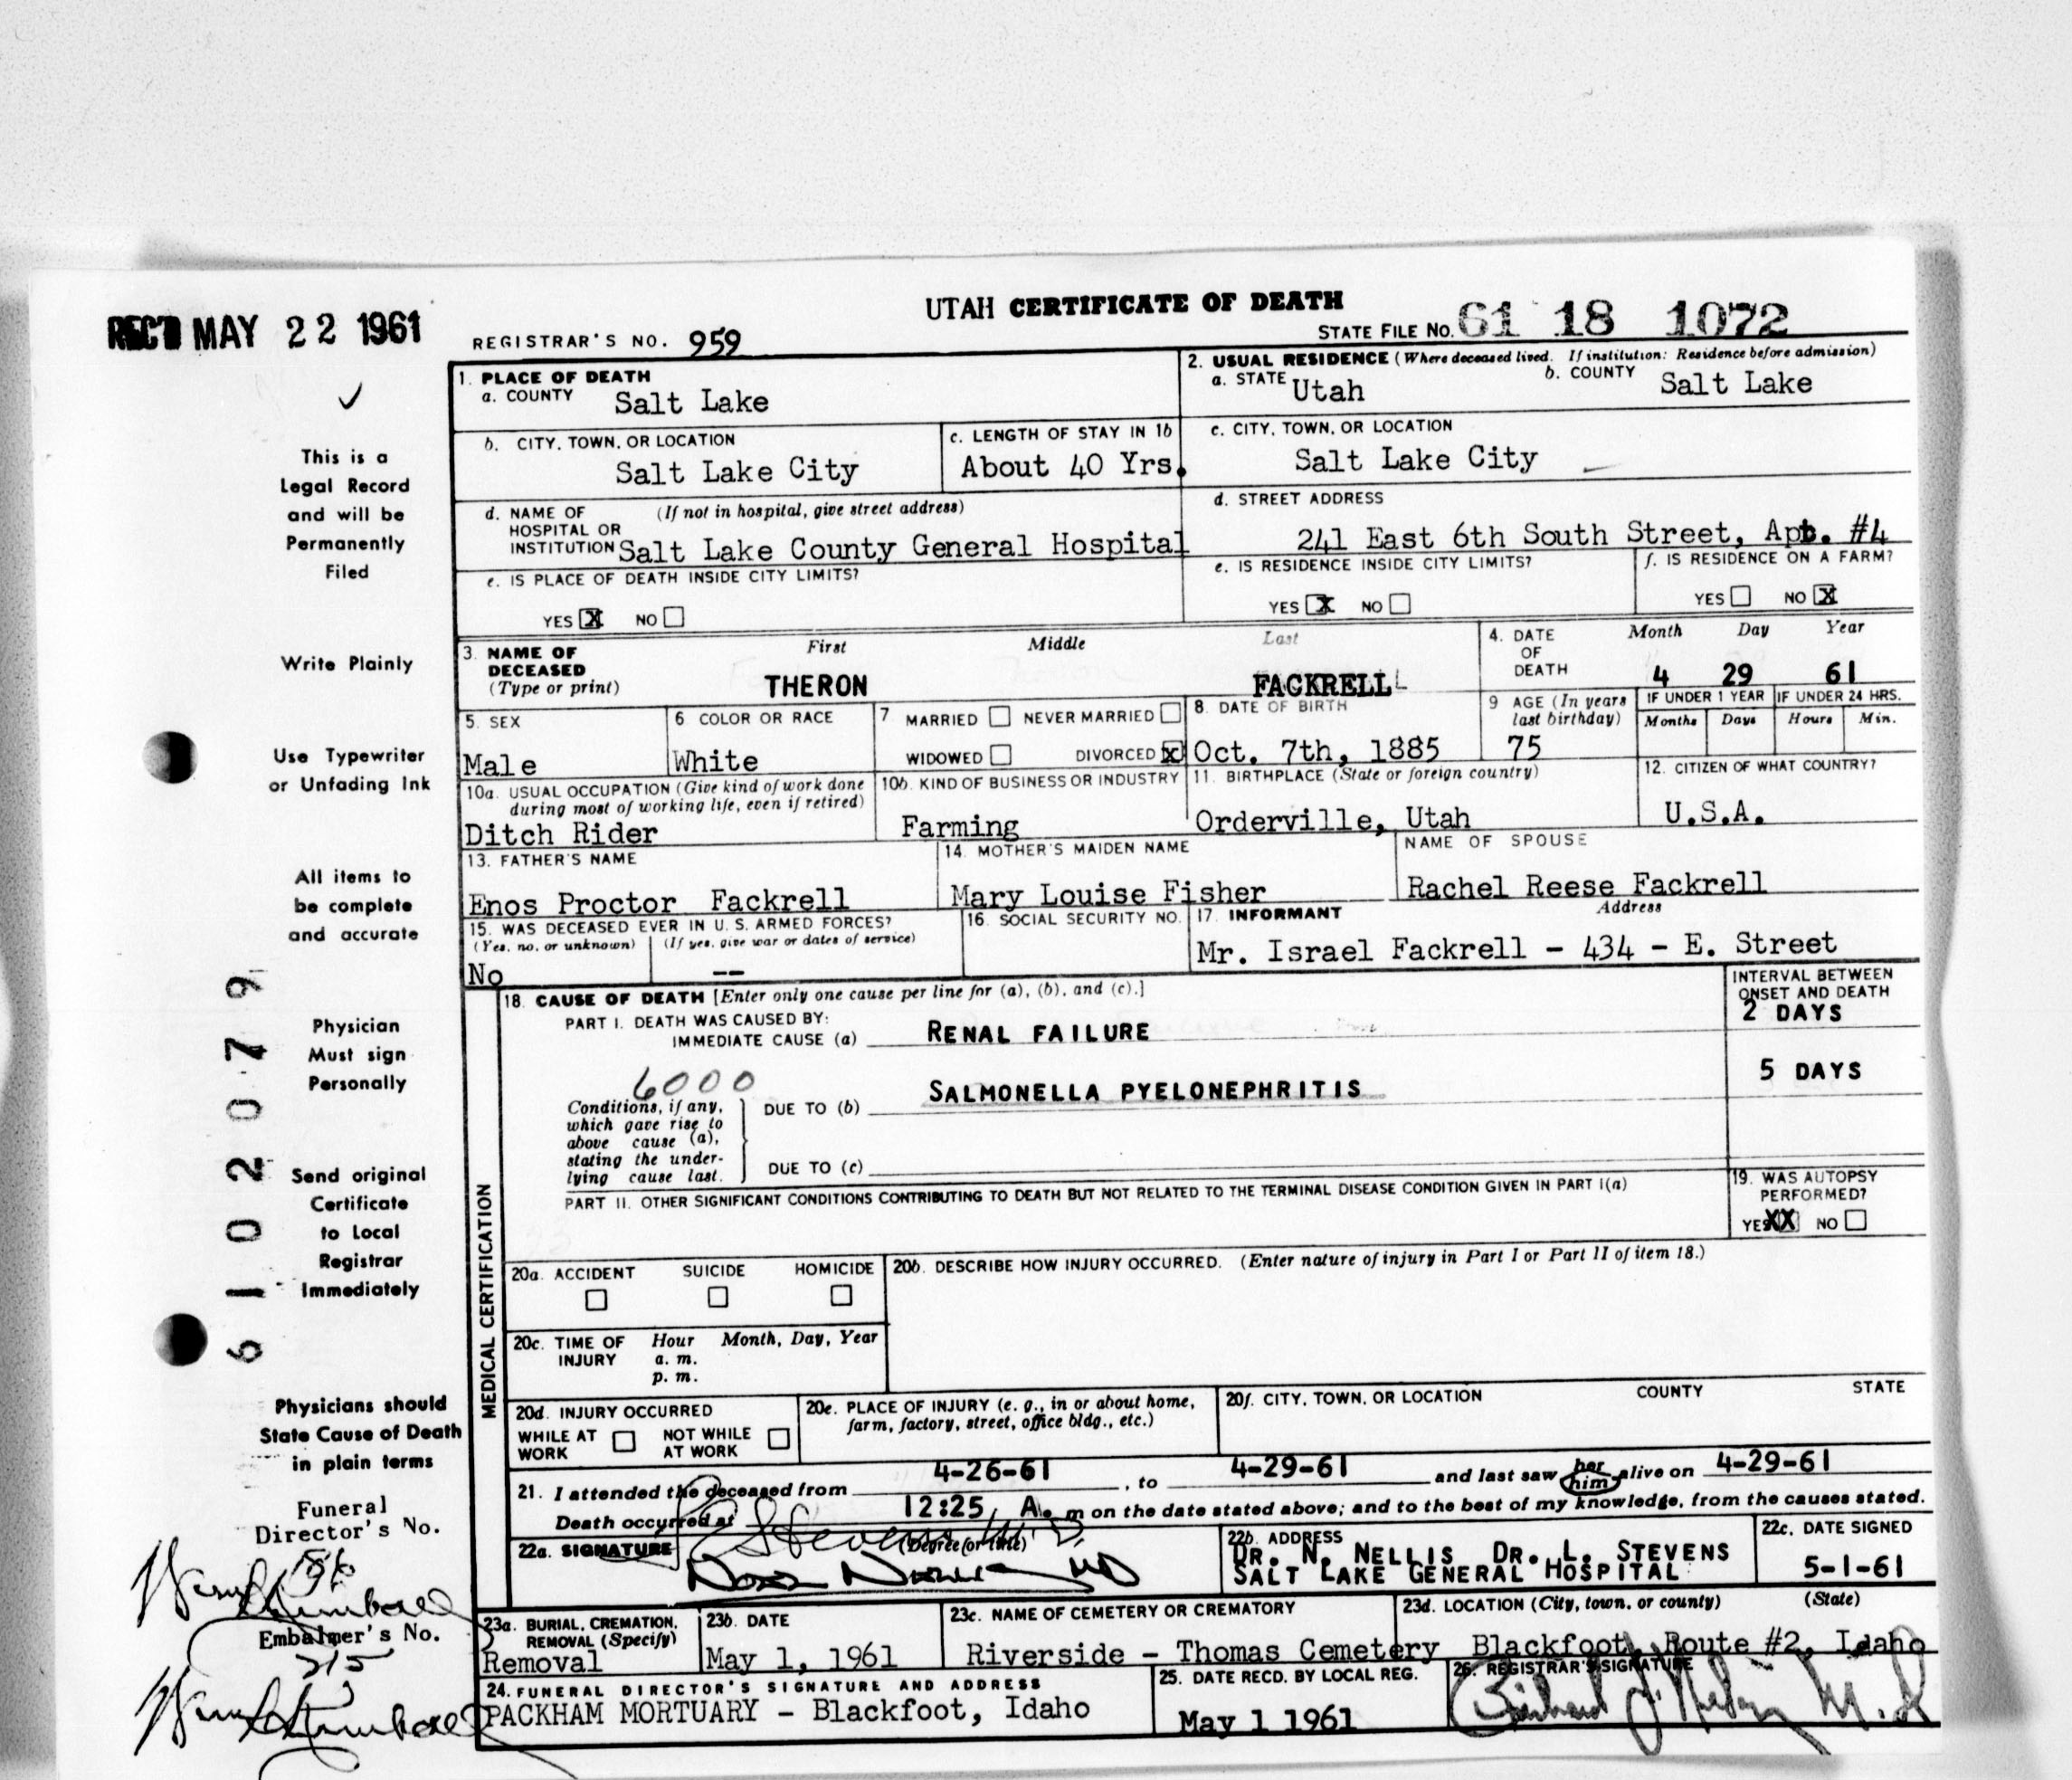 UTAH CERTIFICATE OF DEATH
REC'D MAY 22 1961
REGISTRAR'S NO. 959
STATE FILE NO. 61 18 1072
1. PLACE OF DEATH
a. COUNTY Salt Lake
2. USUAL RESIDENCE (Where deceased lived. If institution: Residence before admission)
a. STATE Utah b. COUNTY Salt Lake
b. CITY, TOWN, OR LOCATION
Salt Lake City
c. LENGTH OF STAY IN 1b
About 40 Yrs.
c. CITY, TOWN, OR LOCATION
Salt Lake City
d. NAME OF HOSPITAL OR INSTITUTION (If not in hospital, give street address)
Salt Lake County General Hospital
d. STREET ADDRESS
241 East 6th South Street, Apt. #4
e. IS PLACE OF DEATH INSIDE CITY LIMITS?
YES X NO
e. IS RESIDENCE INSIDE CITY LIMITS?
YES X NO
f. IS RESIDENCE ON A FARM?
YES NO X
3. NAME OF DECEASED (Type or print)
First Middle Last
THERON FACKRELL
4. DATE OF DEATH
Month Day Year
4 29 61
5. SEX
Male
6 COLOR OR RACE
White
7 MARRIED NEVER MARRIED
WIDOWED DIVORCED X
8. DATE OF BIRTH
Oct. 7th, 1885
9 AGE (In years last birthday)
75
IF UNDER 1 YEAR
Months Days
IF UNDER 24 HRS.
Hours Min.
10a. USUAL OCCUPATION (Give kind of work done during most of working life, even if retired)
Ditch Rider
10b. KIND OF BUSINESS OR INDUSTRY
Farming
11. BIRTHPLACE (State or foreign country)
Orderville, Utah
12. CITIZEN OF WHAT COUNTRY?
U.S.A.
13. FATHER'S NAME
Enos Proctor Fackrell
14. MOTHER'S MAIDEN NAME
Mary Louise Fisher
NAME OF SPOUSE
Rachel Reese Fackrell
15. WAS DECEASED EVER IN U. S. ARMED FORCES?
(Yes, no, or unknown) (If yes, give war or dates of service)
No --
16. SOCIAL SECURITY NO.
17. INFORMANT Address
Mr. Israel Fackrell - 434 - E. Street
MEDICAL CERTIFICATION
18. CAUSE OF DEATH [Enter only one cause per line for (a), (b), and (c).]
INTERVAL BETWEEN ONSET AND DEATH
PART I. DEATH WAS CAUSED BY:
IMMEDIATE CAUSE (a) RENAL FAILURE 2 DAYS
6000
Conditions, if any, which gave rise to above cause (a), stating the underlying cause last.
DUE TO (b) SALMONELLA PYELONEPHRITIS 5 DAYS
DUE TO (c)
PART II. OTHER SIGNIFICANT CONDITIONS CONTRIBUTING TO DEATH BUT NOT RELATED TO THE TERMINAL DISEASE CONDITION GIVEN IN PART I(a)
19. WAS AUTOPSY PERFORMED?
YES XX NO
20a. ACCIDENT SUICIDE HOMICIDE
20b. DESCRIBE HOW INJURY OCCURRED. (Enter nature of injury in Part I or Part II of item 18.)
20c. TIME OF INJURY Hour Month, Day, Year
a. m.
p. m.
20d. INJURY OCCURRED
WHILE AT WORK NOT WHILE AT WORK
20e. PLACE OF INJURY (e. g., in or about home, farm, factory, street, office bldg., etc.)
20f. CITY, TOWN, OR LOCATION COUNTY STATE
21. I attended the deceased from 4-26-61, to 4-29-61 and last saw her him alive on 4-29-61
Death occurred at 12:25, A. m on the date stated above; and to the best of my knowledge, from the causes stated.
22a. SIGNATURE (Degree or title)
Stevens
22b. ADDRESS
DR. N. NELLIS DR. L. STEVENS
SALT LAKE GENERAL HOSPITAL
22c. DATE SIGNED
5-1-61
23a. BURIAL, CREMATION, REMOVAL (Specify)
Removal
23b. DATE
May 1, 1961
23c. NAME OF CEMETERY OR CREMATORY
Riverside - Thomas Cemetery
23d. LOCATION (City, town, or county) (State)
Blackfoot, Route #2, Idaho
24. FUNERAL DIRECTOR'S SIGNATURE AND ADDRESS
PACKHAM MORTUARY - Blackfoot, Idaho
25. DATE RECD. BY LOCAL REG.
May 1 1961
26. REGISTRAR'S SIGNATURE
This is a
Legal Record
and will be
Permanently
Filed
Write Plainly
Use Typewriter
or Unfading Ink
All items to
be complete
and accurate
Physician
Must sign
Personally
Send original
Certificate
to Local
Registrar
Immediately
Physicians should
State Cause of Death
in plain terms
Funeral
Director's No.
Embalmer's No.
215
6102079